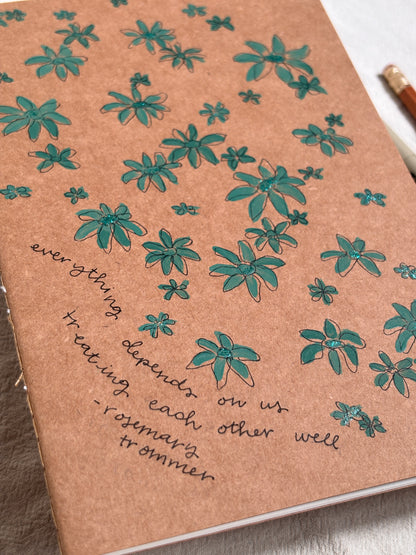 everything depends on us
treating each other well
-rosemary
trommer